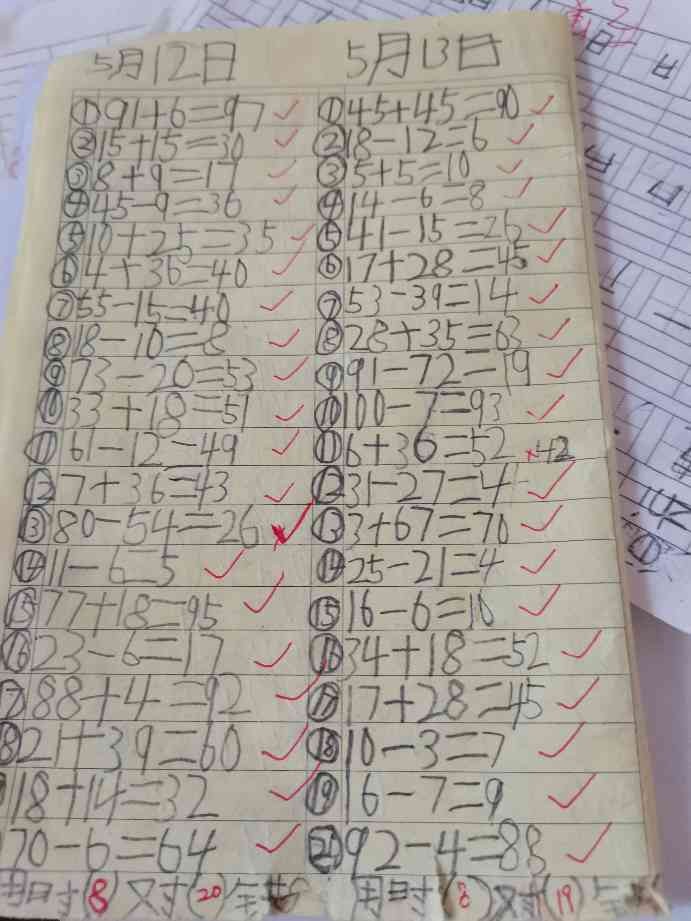 5月12日
①91+6=97
②15+15=30
③8+9=17
④45-9=36
⑤10+25=35
⑥4+36=40
⑦55-15=40
⑧18-10=8
⑨73-20=53
⑩33+18=51
⑪61-12=49
⑫7+36=43
⑬80-54=26
⑭11-6=5
⑮77+18=95
⑯23-6=17
⑰88+4=92
⑱21+39=60
18+14=32
70-6=64
用时(8) 对(20)
5月13日
①45+45=90
②18-12=6
③5+5=10
④14-6=8
⑤41-15=26
⑥17+28=45
⑦53-39=14
⑧28+35=63
⑨91-72=19
⑩100-7=93
⑪6+36=52 42
⑫31-27=4
⑬3+67=70
⑭25-21=4
⑮16-6=10
⑯34+18=52
⑰17+28=45
⑱10-3=7
⑲16-7=9
⑳92-4=88
用时(8) 对(19)